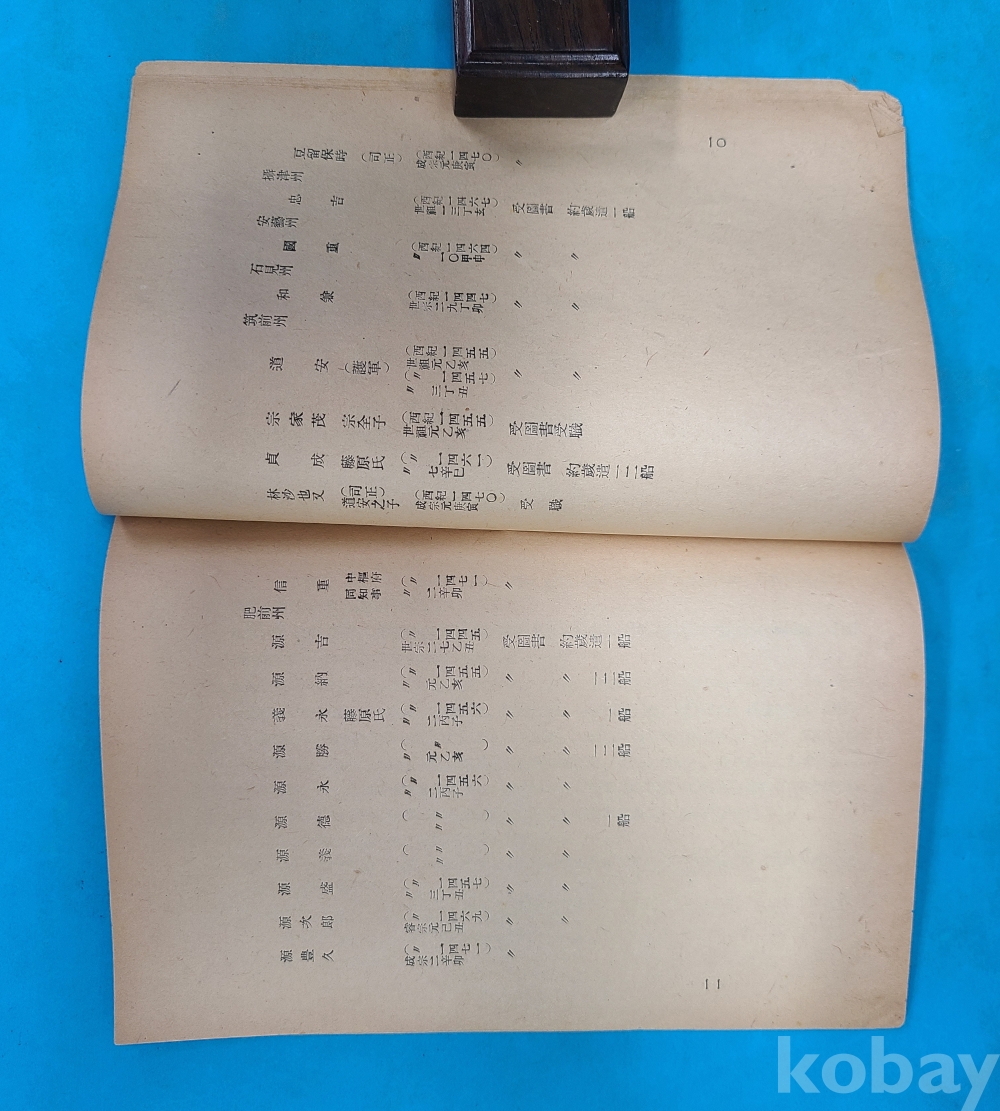 一〇
豆留保時 (司正) (西紀一四七〇) 成宗元庚寅 〃
攝津州
忠吉 (西紀一四六七) 世祖一三丁亥 受圖書 約歲遣一船
安藝州
國重 (西紀一四六四) 〃一〇甲申 〃 〃
石見州
和兼 (西紀一四四七) 世宗二九丁卯 〃 〃
筑前州
道安 (護軍) (西紀一四五五) 世祖元乙亥 (〃一四五七) 〃三丁丑 〃 〃
宗家茂 宗全子 (西紀一四五五) 世祖元乙亥 受圖書受職
貞成藤原氏 (〃一四六一) 〃七辛巳 受圖書 約歲遣一二船
林沙也文 (司正) 道安之子 (西紀一四七〇) 成宗元庚寅 受職
信重 中樞府同知事 (〃一四七一) 〃二辛卯 〃
肥前州
源吉 (〃一四四五) 世宗二七乙丑 受圖書 約歲遣一船
源納 (〃一四五五) 〃元乙亥 〃 〃 一二船
義永藤原氏 (〃一四五六) 〃二丙子 〃 〃 一船
源勝 (〃) 〃元乙亥 〃 〃 一二船
源永 (〃一四五六) 〃二丙子 〃 〃
源德 (〃) 〃 〃 〃 一船
源義 (〃) 〃 〃 〃
源盛 (〃一四五七) 〃三丁丑 〃 〃
源次郎 (〃一四六九) 睿宗元己丑 〃 〃
源豊久 (〃一四七一) 成宗二辛卯 〃
一一
kobay